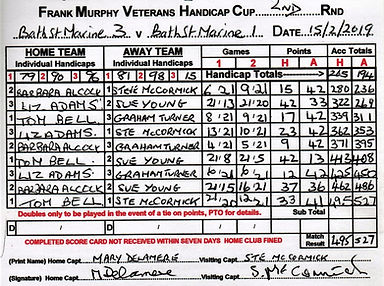 FRANK MURPHY VETERANS HANDICAP CUP 2ND RND
Bath St Marine 3 v Bath St Marine 1 DATE 15/2/2019
HOME TEAM AWAY TEAM Games Points Acc Totals
Individual Handicaps Individual Handicaps 1 2 H A H A
1 79 2 90 3 96 1 81 2 98 3 15 Handicap Totals 265 194
2 BARBARA ALCOCK 1 STE MCCORMICK 6 21 9 21 15 42 280 236
3 LIZ ADAMS 2 SUE YOUNG 21 13 21 20 42 33 322 269
1 TOM BELL 3 GRAHAM TURNER 8 21 9 21 17 42 339 311
3 LIZ ADAMS 1 STE MCCORMICK 13 21 10 21 23 42 362 353
2 BARBARA ALCOCK 3 GRAHAM TURNER 4 21 5 21 9 42 371 395
1 TOM BELL 2 SUE YOUNG 21 8 21 5 42 13 413 408
3 LIZ ADAMS 3 GRAHAM TURNER 12 42 425 450
2 BARBARA ALCOCK 2 SUE YOUNG 21 15 16 21 37 36 462 486
1 TOM BELL 1 STE MCCORMICK 33 41 495 527
Doubles only to be played in the event of a tie on points, PTO for details. Sub Total
D / D /
COMPLETED SCORE CARD NOT RECEIVED WITHIN SEVEN DAYS HOME CLUB FINED Match Result 495 527
(Print Name) Home Capt. MARY DELAMERE Visiting Capt STE MCCORMICK
(Signature) Home Capt. M Delamere Visiting Capt. S. McCormick